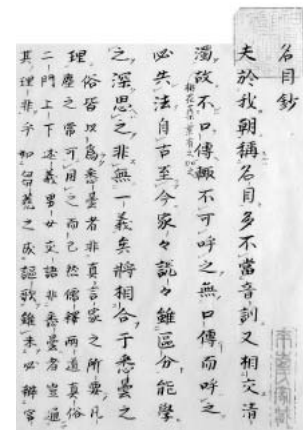 名目鈔
夫於我朝稱名目多不當音訓又相交清
濁故不口傳輙不可呼之無口傳而呼之
必失法自古至今家々說々雖區分能學
之深思之非無一義矣將相合于悉曇之
理俗皆以爲悉曇者非真言家之所要凡
塵之常可用之而已然儒釋兩道真俗
二門上下述義男女交語非悉曇者豈通
其理非乎如蒭蕘之詠謳歌雖未必辨宮